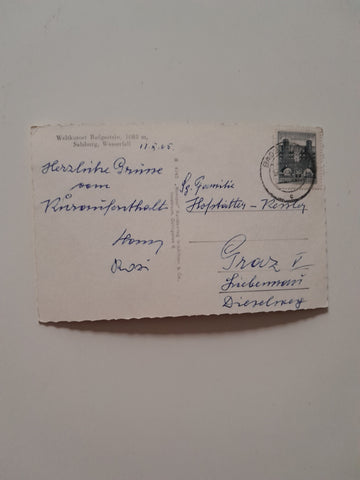 Weltkurort Badgastein, 1083 m,
Salzburg, Wasserfall
Herzliche Grüsse
vom
Kuraufenthalt
Rosi
Sg. Familie
Hofstätter - Kessler
Graz V
Liebenau
Dieselweg
BAD